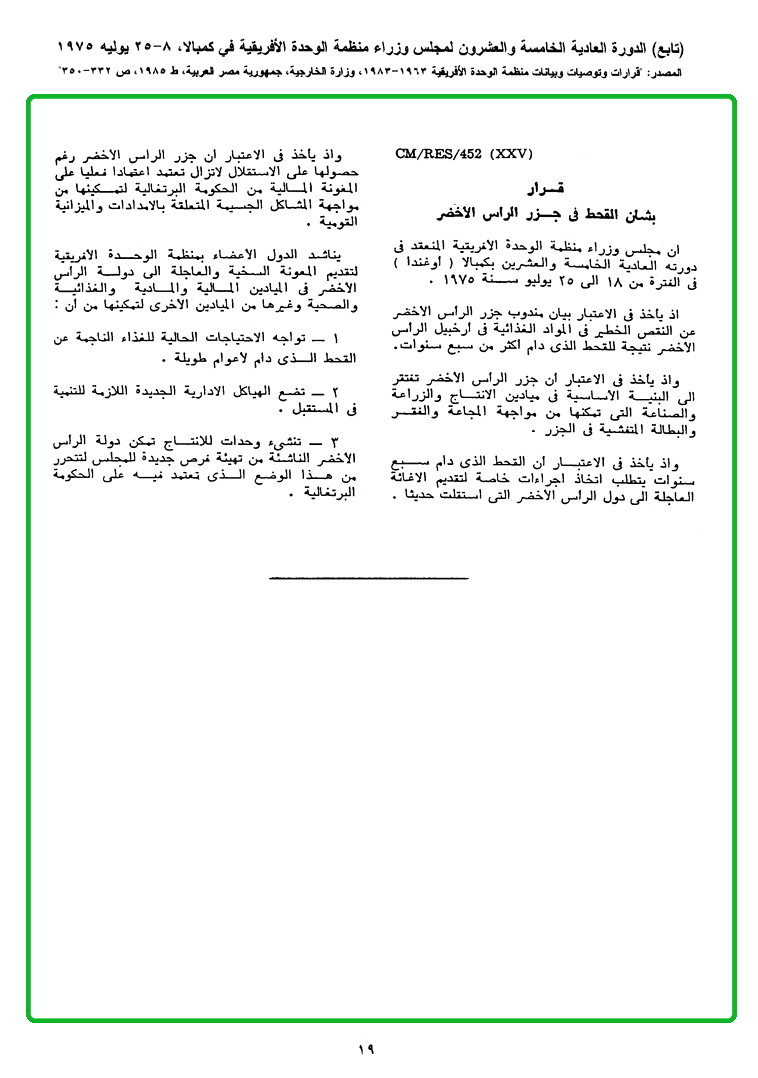 (تابع) الدورة العادية الخامسة والعشرون لمجلس وزراء منظمة الوحدة الأفريقية في كمبالا، ٨-٢٥ يوليه ١٩٧٥
المصدر: "قرارات وتوصيات وبيانات منظمة الوحدة الأفريقية ١٩٦٣-١٩٨٣، وزارة الخارجية، جمهورية مصر العربية، ط ١٩٨٥، ص ٣٣٢-٣٥٠"
CM/RES/452 (XXV)
قـرار
بشان القحط فى جـزر الراس الأخضر
ان مجلس وزراء منظمة الوحدة الافريقية المنعقد فى
دورته العادية الخامسة والعشرين بكمبالا ( أوغندا )
فى الفترة من ١٨ الى ٢٥ يوليو سـنة ١٩٧٥ .
اذ يأخذ فى الاعتبار بيان مندوب جزر الراس الأخضر
عن النقص الخطير فى المواد الغذائية فى أرخبيل الرأس
الأخضر نتيجة للقحط الذى دام أكثر من سبع سنوات.
واذ يأخذ فى الاعتبار أن جزر الراس الأخضر تفتقر
الى البنيـة الأساسية فى ميادين الانتاج والزراعة
والصناعة التى تمكنها من مواجهة المجاعة والفقـر
والبطالة المتفشية فى الجزر .
واذ يأخذ فى الاعتبـار أن القحط الذى دام سـبع
سنوات يتطلب اتخاذ اجراءات خاصة لتقديم الاغاثة
العاجلة الى دول الراس الأخضر التى استقلت حديثا .
واذ يأخذ فى الاعتبار ان جزر الراس الأخضر رغم
حصولها على الاستقلال لاتزال تعتمد اعتمادا فعليا على
المغونة المـالية من الحكومة البرتغالية لتمـكينها من
مواجهة المشاكل الجسيمة المتعلقة بالامدادات والميزانية
القومية .
يناشد الدول الأعضاء بمنظمة الوحـدة الأفريقية
لتقديم المعونة السخية والعاجلة الى دولـة الرأس
الأخضر فى الميادين المـالية والمـادية والغذائيـة
والصحية وغيرها من الميادين الأخرى لتمكينها من أن :
١ — تواجه الاحتياجات الحالية للغذاء الناجمة عن
القحط الـذى دام لأعوام طويلة .
٢ — تضع الهياكل الادارية الجديدة اللازمة للتنمية
فى المستقبل .
٣ — تنشىء وحدات للانتـاج تمكن دولة الراس
الأخضر الناشئة من تهيئة فرص جديدة للمجلس لتتحرر
من هـذا الوضع الـذى تعتمد فيـه على الحكومة
البرتغالية .
١٩